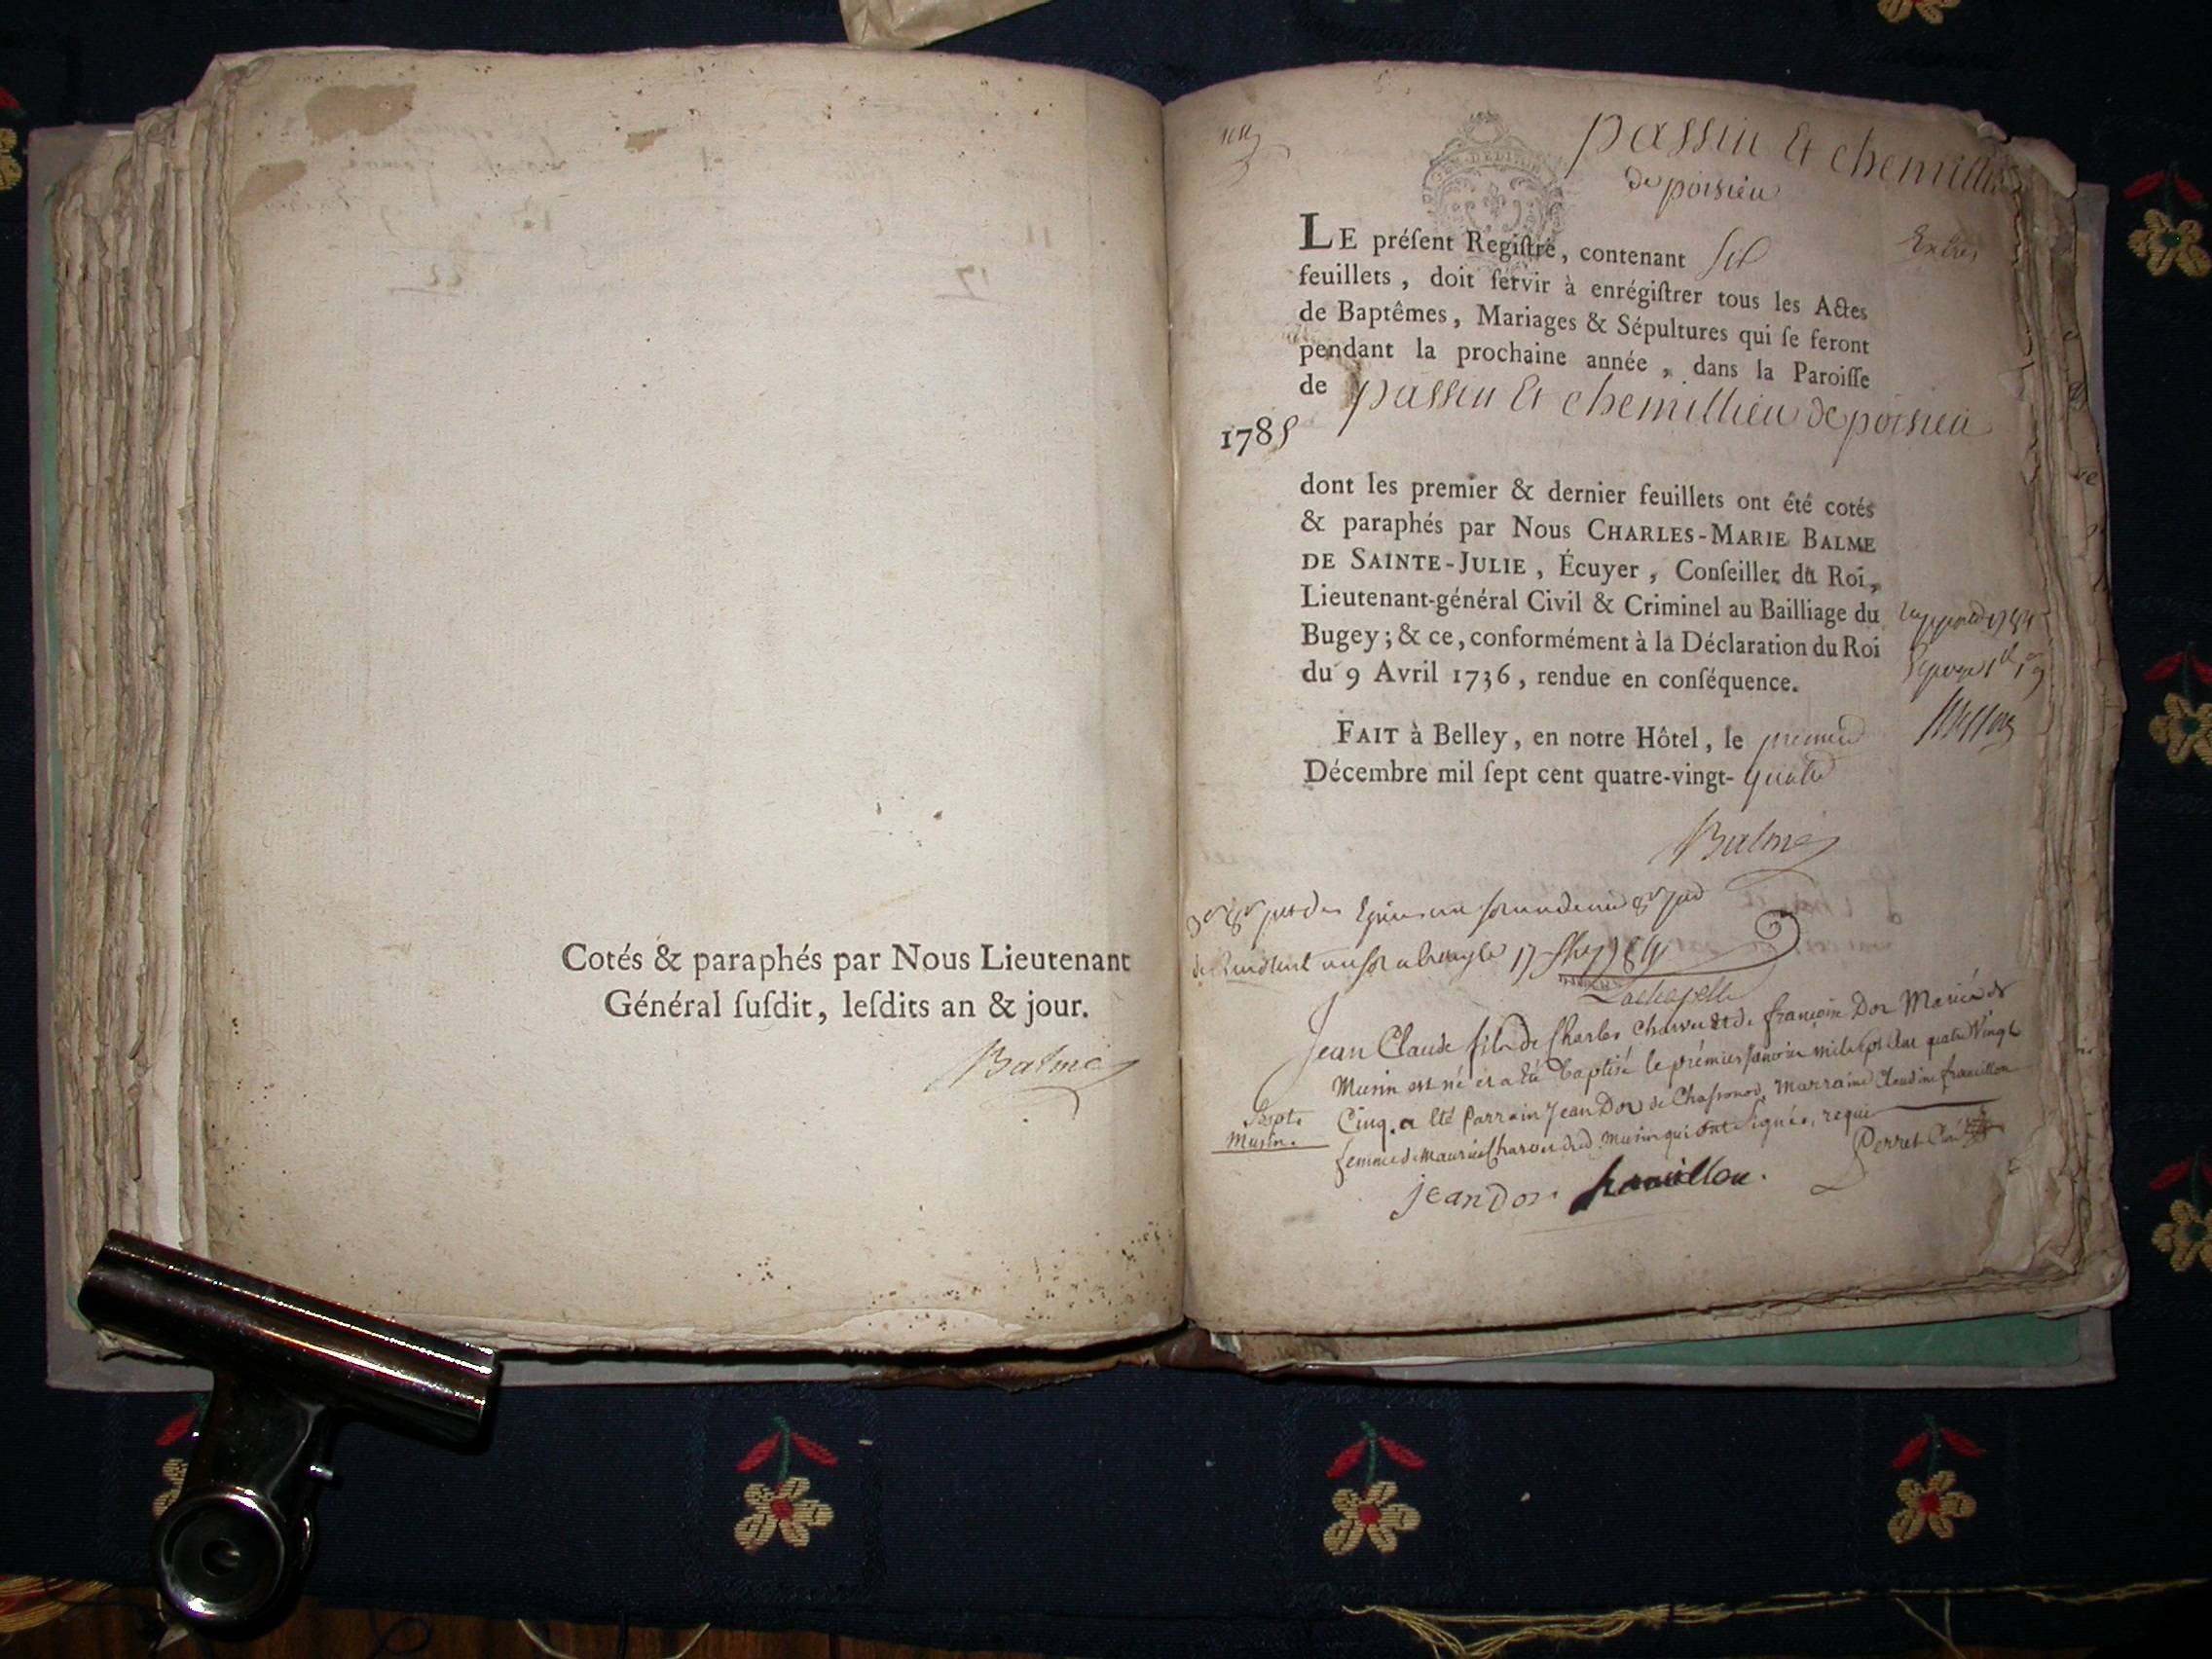 Cotés & paraphés par Nous Lieutenant
Général ſuſdit, leſdits an & jour.
Balme
passin Et chemillieu
de poisieu
LE préſent Regiſtre, contenant
feuillets, doit ſervir à enrégiſtrer tous les Actes
de Baptêmes, Mariages & Sépultures qui ſe feront
pendant la prochaine année, dans la Paroiſſe
de passin Et chemillieu de poisieu
1785
dont les premier & dernier feuillets ont été cotés
& paraphés par Nous CHARLES-MARIE BALME
DE SAINTE-JULIE, Écuyer, Conſeiller du Roi,
Lieutenant-général Civil & Criminel au Bailliage du
Bugey; & ce, conformément à la Déclaration du Roi
du 9 Avril 1736, rendue en conſéquence.
FAIT à Belley, en notre Hôtel, le premier
Décembre mil ſept cent quatre-vingt- quatre
Balme
Lachapelle
Jean Claude fils de Charles Charvet et de françoise Dor Mariés de
Musin est né et a été baptisé le prémier janvier mil sept cent quatre Vingt
Cinq. a été Parrain Jean Dor de Chassonod, Marraine Claudine francillon
femme de Maurice Charvet dud. Musin qui ont Signés, requis
Bapt.
Musin.
Perret Curé
jean Dor francillon.